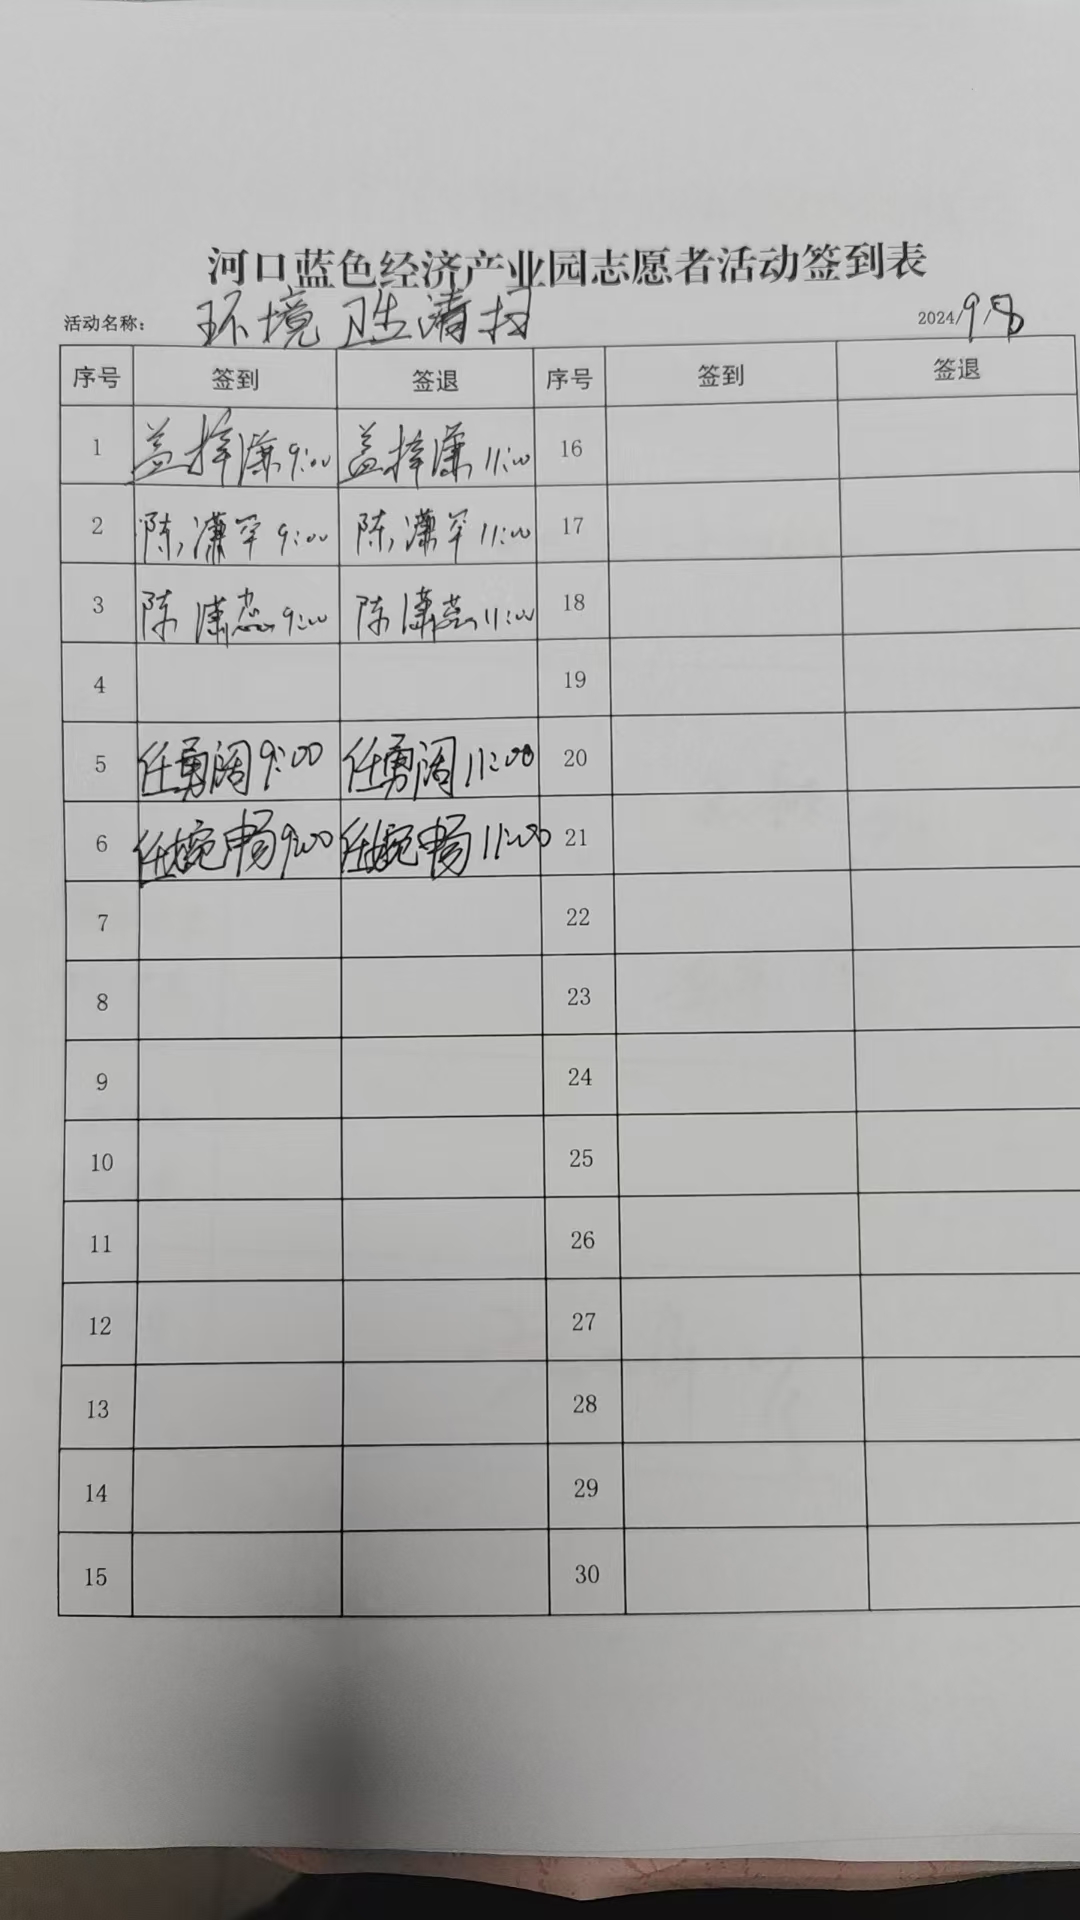 河口蓝色经济产业园志愿者活动签到表
活动名称： 环境卫生清扫 2024/9/8
序号 签到 签退 序号 签到 签退
1 盖梓潇 9:00 盖梓潇 11:00 16
2 陈潇罕 9:00 陈潇罕 11:00 17
3 陈潇蕊 9:00 陈潇蕊 11:00 18
4 19
5 任勇阔 9:00 任勇阔 11:00 20
6 任婉畅 9:00 任婉畅 11:00 21
7 22
8 23
9 24
10 25
11 26
12 27
13 28
14 29
15 30